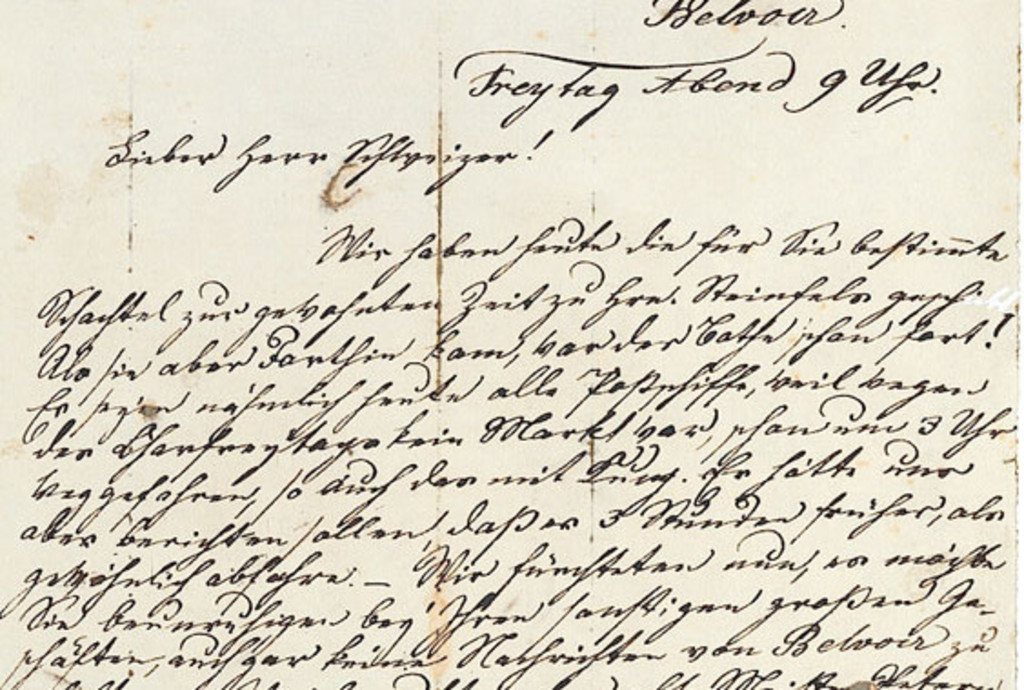 Belvoir.
Freytag Abend 9 Uhr.
Lieber Herr Schweizer!
Wir haben heute die für Sie bestimmte
Schachtel zur gewohnten Zeit zu Hrn. Steinfels geschickt
Als sie aber Dorthin kam, war der Bothe schon fort!
Es seyen nähmlich heute alle Postschiffe, weil wegen
des Charfreytags kein Markt war, schon um 3 Uhr
weggefahren, so auch das mit Küng. Er hätte uns
aber berichten sollen, daß er 3 Stunden früher, als
gewöhnlich abfahre. – Wir fürchteten nun, es möchte
Sie beunruhigen bey Ihren sonstigen großen Ge-
schäften, auch gar keine Nachrichten von Belvoir zu